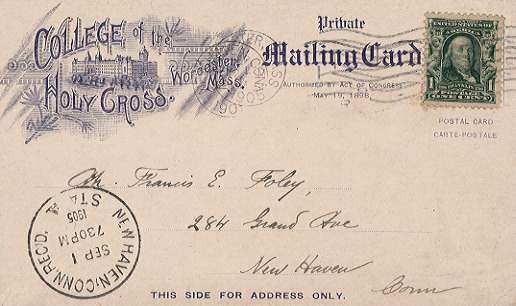 COLLEGE of the
HOLY CROSS.
Worcester,
Mass.
Private
Mailing Card
AUTHORIZED BY ACT OF CONGRESS
MAY 19, 1898
POSTAL CARD
CARTE-POSTALE
1 1
ONE CENT
Mr. Francis E. Foley,
284 Grand Ave
New Haven
Conn
NEW HAVEN, CONN. REC'D.
STA
1905
SEP 1
730PM
THIS SIDE FOR ADDRESS ONLY.